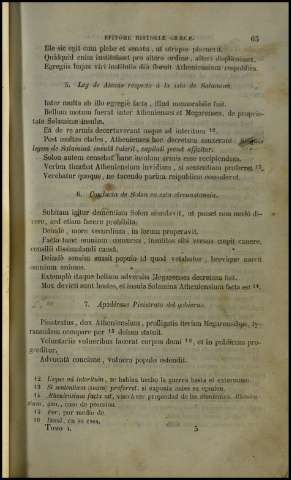 EPITOME HISTORIÆ GRÆCÆ. 65
Ille sic egit cum plebe et senatu, ut utrique placuerit.
Quidquid enim instituisset pro altero ordine, alteri displicuisset.
Egregiis hujus viri institutis diù floruit Atheniensium respublica.
5. Ley de Atenas respecto á la isla de Salamina.
Inter multa ab illo egregiè facta, illud memorabile fuit.
Bellum motum fuerat inter Athenienses et Megarenses, de proprietate
Salaminæ insulæ.
Eâ de re armis decertaverant usque ad interitum 12.
Post multas clades, Athenienses hoc decretum sanxerant:
legem de Salamina insulâ tulerit, capitali pœnâ afficitor.
Solon autem censebat hanc insulam armis esse recipiendam.
Verùm timebat Atheniensium invidiam, si sententiam proferret 13.
Verebatur quoque, ne tacendo parùm reipublicæ consuleret.
6. Conducta de Solon en esta circunstancia.
Subitam igitur dementiam Solon simulavit, ut posset non modò dicere,
sed etiam facere prohibita.
Deinde, more vecordium, in forum properavit.
Facto tunc omnium concursu, insolitos sibi versus cœpit canere,
consilii dissimulandi causâ.
Deindè sensim suasit populo id quod vetabatur, brevique movit
omnium animos.
Extemplò itaque bellum adversùs Megarenses decretum fuit.
Mox devicti sunt hostes, et insula Salamina Atheniensium facta est 14.
7. Apodérase Pisistrato del gobierno.
Pisistratus, dux Atheniensium, profligatis iterùm Megarensibus, tyrannidem
occupare per 15 dolum statuit.
Voluntariis vulneribus lacerat corpus domi 16, et in publicum progreditur.
Advocatâ concione, vulnera populo ostendit.
12 Usque ad interitum, se habian hecho la guerra hasta el exterminio.
13 Si sententiam suam proferret, si exponia antes su opinion.
14 Atheniensium facta est, vino á ser propiedad de los atenienses.
15 Per, por medio de.
16 Domi, en su casa.
Tomo I. 5